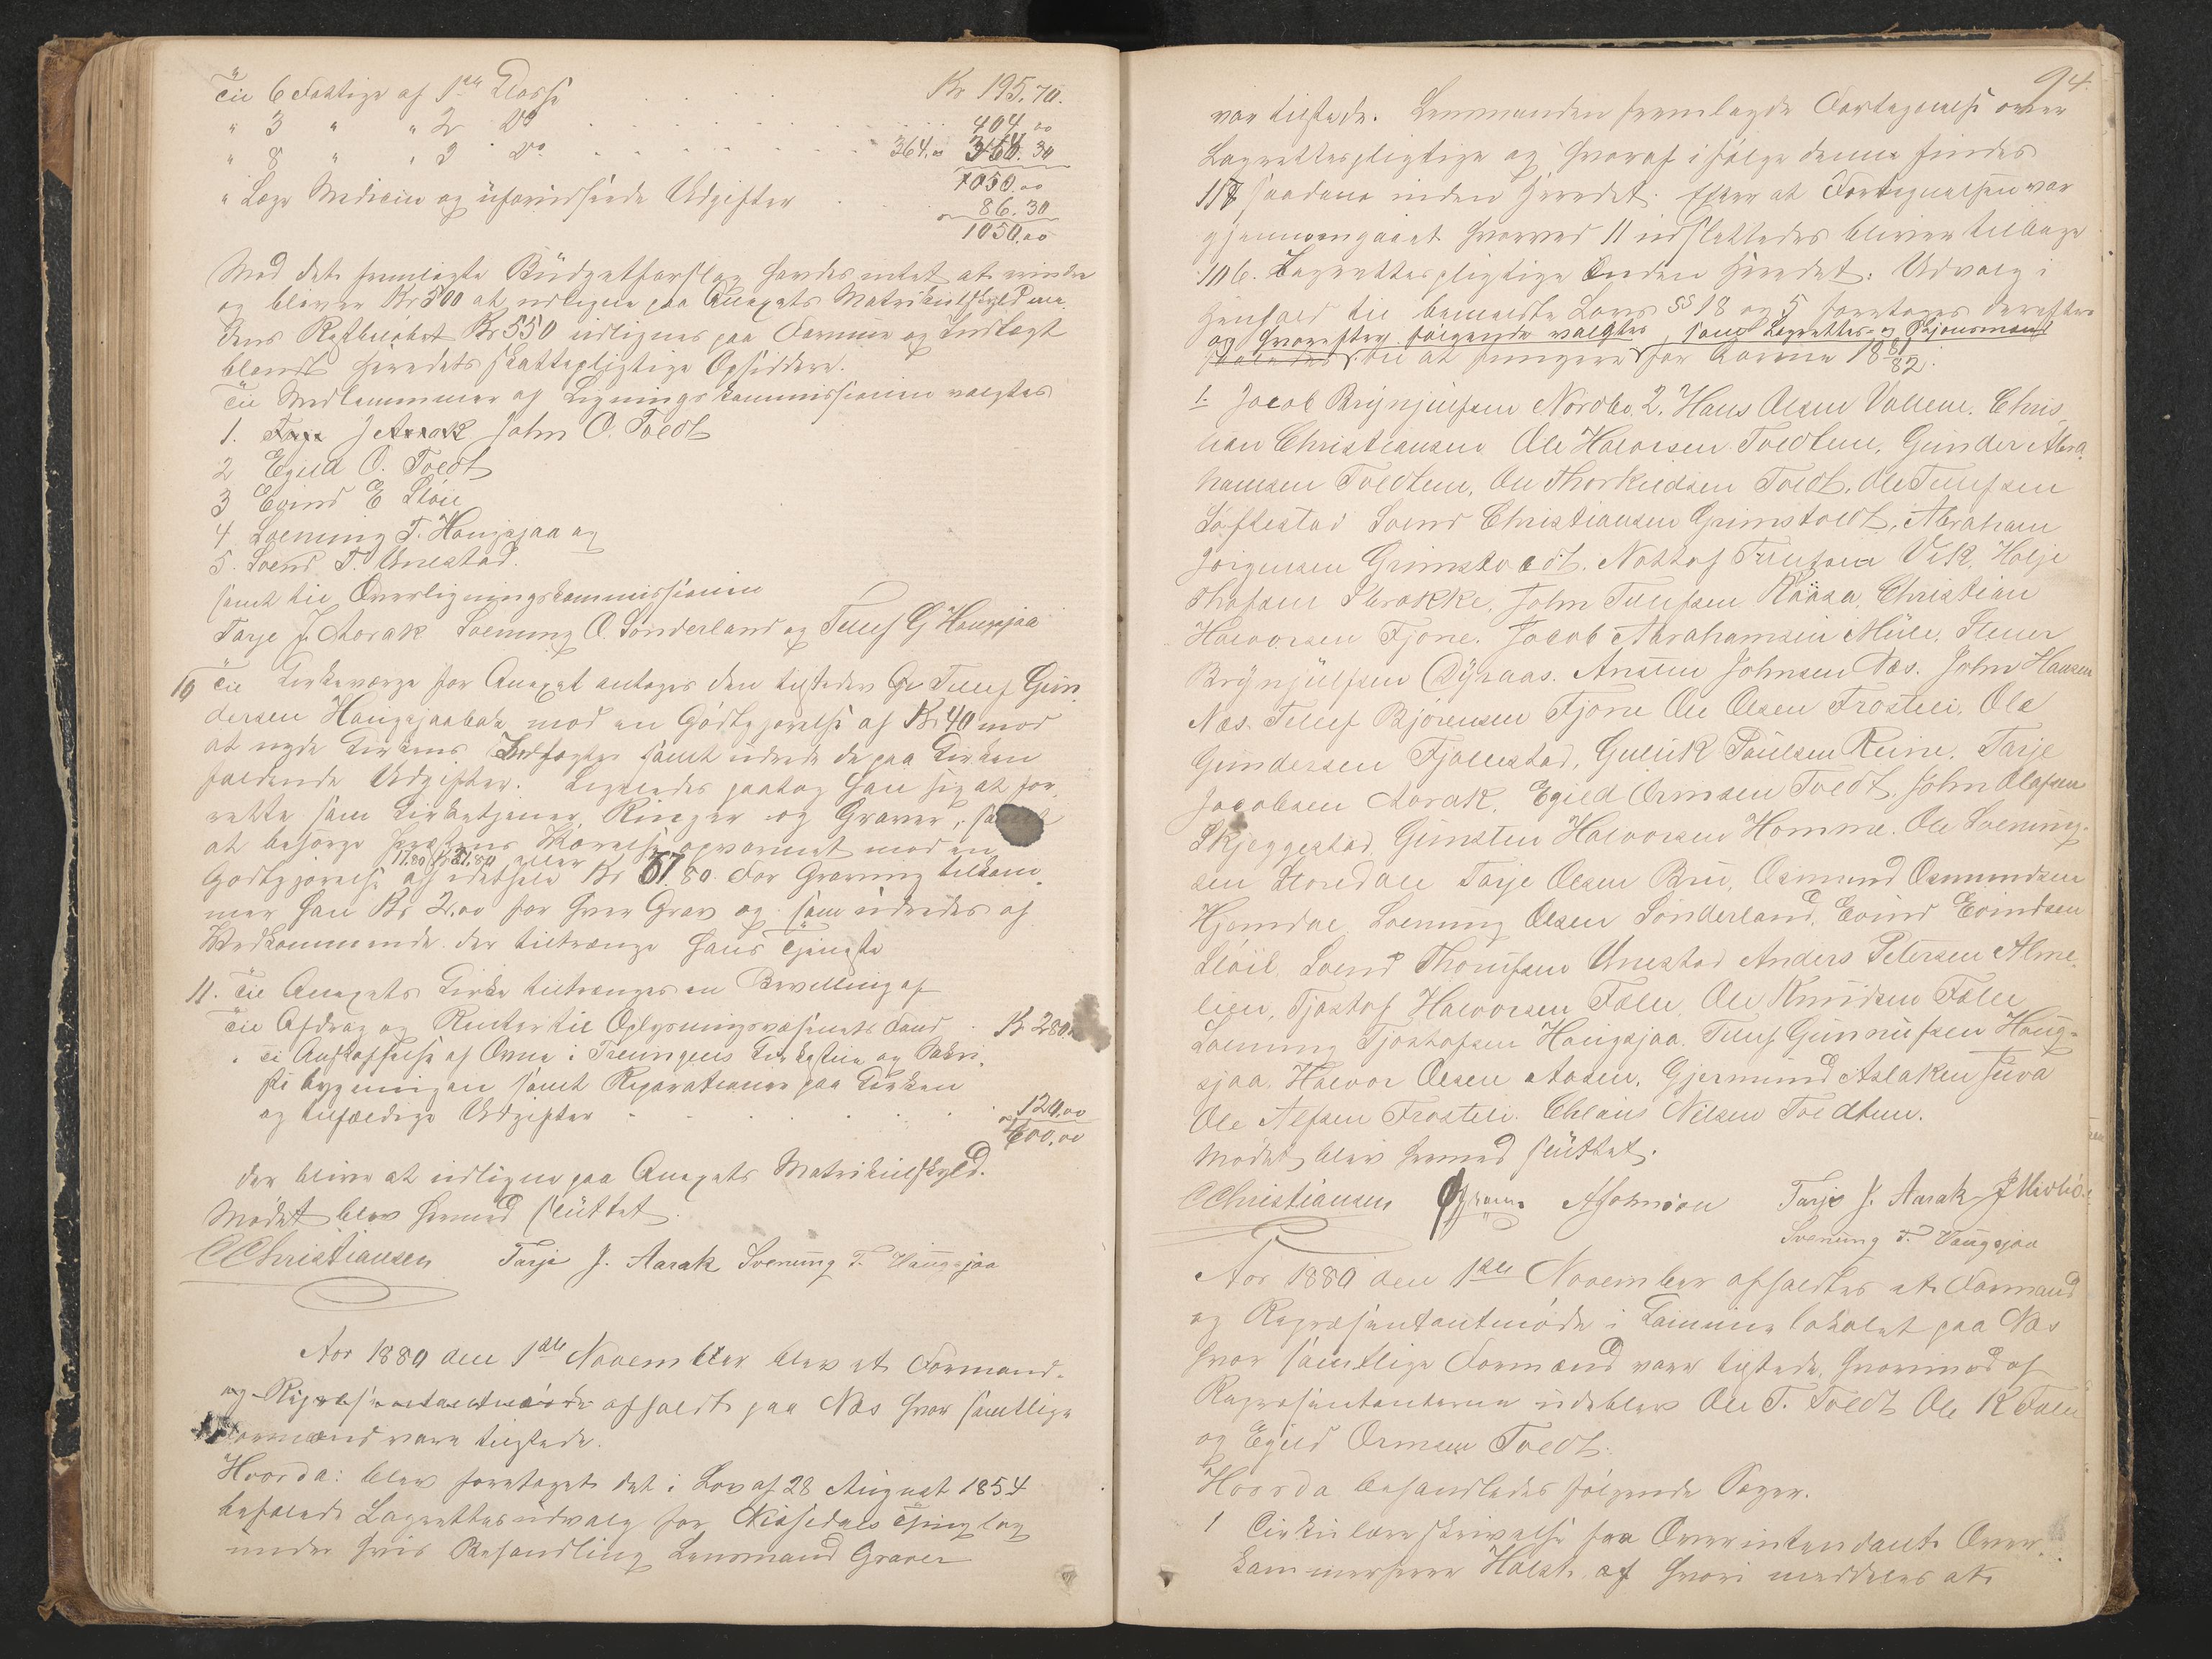 Til 6 Fattige af 1ste Classe Kr 195.70.
" 3 " " 2 Do 404.00
" 8 " " 3 Do 364.00 364.30
" Læge Medicin og uforudseede Udgifter 1050.00
86.30
1050.00
Mod det fremlagte Budgetforslag havdes intet at erindre
og bliver Kr 500 at udligne paa Annexets Matrikulskyld me
dens Restbeløbet Kr 550 udlignes paa Formue og Indtægt
blandt Herredets skattepligtige Opsiddere.
Til Medlemmer af Ligningskommissionen valgtes
1. Tarje J Aarak John O. Tvedt
2 Egild O. Tvedt
3 Evind E Støil
4 Svenung T. Haugsjaa og
5. Svend T. Unestad.
samt til Overligningskommissionen
Tarje J. Aarak Svenung O. Sønderland og Tellef G Haugsjaa
10 Til Kirkeværge for Annexet antoges den tilstedev Gr Tellef Gun
dersen Haugsjaabak mod en Godtgjørelse af Kr 40 mod
at nyde Kirkens Indtægter samt udrede de paa Kirken
faldende Udgifter. Ligeledes paatog han sig at for
rette som Kirketjener, Ringer og Graver, samt
at besørge Præstens Værelse opvarmet mod en
17.80 Kr 37.80 eller
Godtgjørelse af idethele Kr 57.80. For Gravning tilkom
mer han Kr 2.00 for hver Grav og som udredes af
Vedkommende der tiltrænge hans Tjeneste
11. Til Annexets Kirke tiltrænges en Bevilling af
Til Afdrag og Renter til Oplysningsvæsenets Fond Kr 280.
" Anskaffelse af Ovne i Treungens Kirkestue og Sakri
stibygningen samt Reparationer paa Kirken
og tilfældige Udgifter 120.00
400.00
der blive at udligne paa Annexets Matrikulskyld.
Mødet blev hermed sluttet.
CChristiansen Tarje J. Aarak Svenung T. Haugsjaa
Aar 1880 den 1ste November blev et Formand-
og Repræsentantmøde afholdt paa Næs hvor samtlige
Formænd vare tilstede.
Hvorda: blev foretaget det i Lov af 28 August 1854
befalede Lagrettesudvalg for Nissedals Thinglag
under hvis Behandling Lensmand Graver
94.
var tilstede. Lensmanden fremlagde Fortegnelse over
Lagrettespligtige og hvoraf i følge denne findes
117 saadane inden Herredet. Efter at Fortegnelsen var
gjennemgaaet hvorved 11 udslettedes bliver tilbage
106. Lagrettespligtige inden Herredet. Udvalg i
Henhold til bemeldte Lovs §§ 18 og 5 foretoges derefter
og hvorefter følgende valgtes som Lagrettes- og Skjønsmænd
til at fungere for Aarene 1881/82.
1. Jacob Brynjulfsen Nordbø, 2. Hans Olsen Vollene. Chris
tian Christiansen Ole Halvorsen Tvedtene, Gunder Abra
hamsen Tvedtene, Ole Thorkildsen Tvedt, Ole Tellefsen
Løftestad Svend Christiansen Grimstvedt, Abraham
Jørgensen Grimstvedt. Nottof Tellefsen Vik, Holje
Thofsen Strokke, John Tellefsen Kaasa, Christian
Halvorsen Fjone. Jacob Abrahamsen Mule, Stener
Brynjulfsen Dyraas. Ansten Johnsen Næs. John Hansen
Næs. Tellef Bjørensen Fjone Ole Olsen Frosteli, Ole
Gundersen Fjollestad, Gulluk Poulsen Reine. Tarje
Jacobsen Aarak, Egild Ormsen Tvedt, John Olafsen
Skjeggestad, Gunsten Halvorsen Homme. Ole Svenung-
sen Storedale Tarje Olsen Bru, Osmund Osmundsen
Hjemdal Svenung Olsen Sønderland, Evind Evindsen
Støil, Svend Thomfsen Unestad Anders Petersen Alme
lien, Tjostof Halvorsen Fole, Ole Knudsen Fole
Svenung Tjostofsen Haugsjaa. Tellef Gunnufsen Haug-
sjaa. Halvor Olsen Aasen, Gjermund Aslaksen Juva
Ole Alfsen Frosteli. Chlaus Nilsen Tvedten.
Mødet blev hermed sluttet.
CChristiansen AJohnson Tarje J. Aarak
Svenung T. Haugsjaa
Aar 1880 den 1ste November afholdtes et Formand
og Repræsentantmøde i Kommunelokalet paa Næs
hvor samtlige Formænd vare tilstede, hvorimod af
Repræsentanterne udeblev Ole T. Tvedt Ole K Fole
og Egild Ormsen Tvedt.
Hvorda behandledes følgende Sager.
1 Cirkulærskrivelse fra Overintendant Over
kammerherre Holst af hvori meddeles at